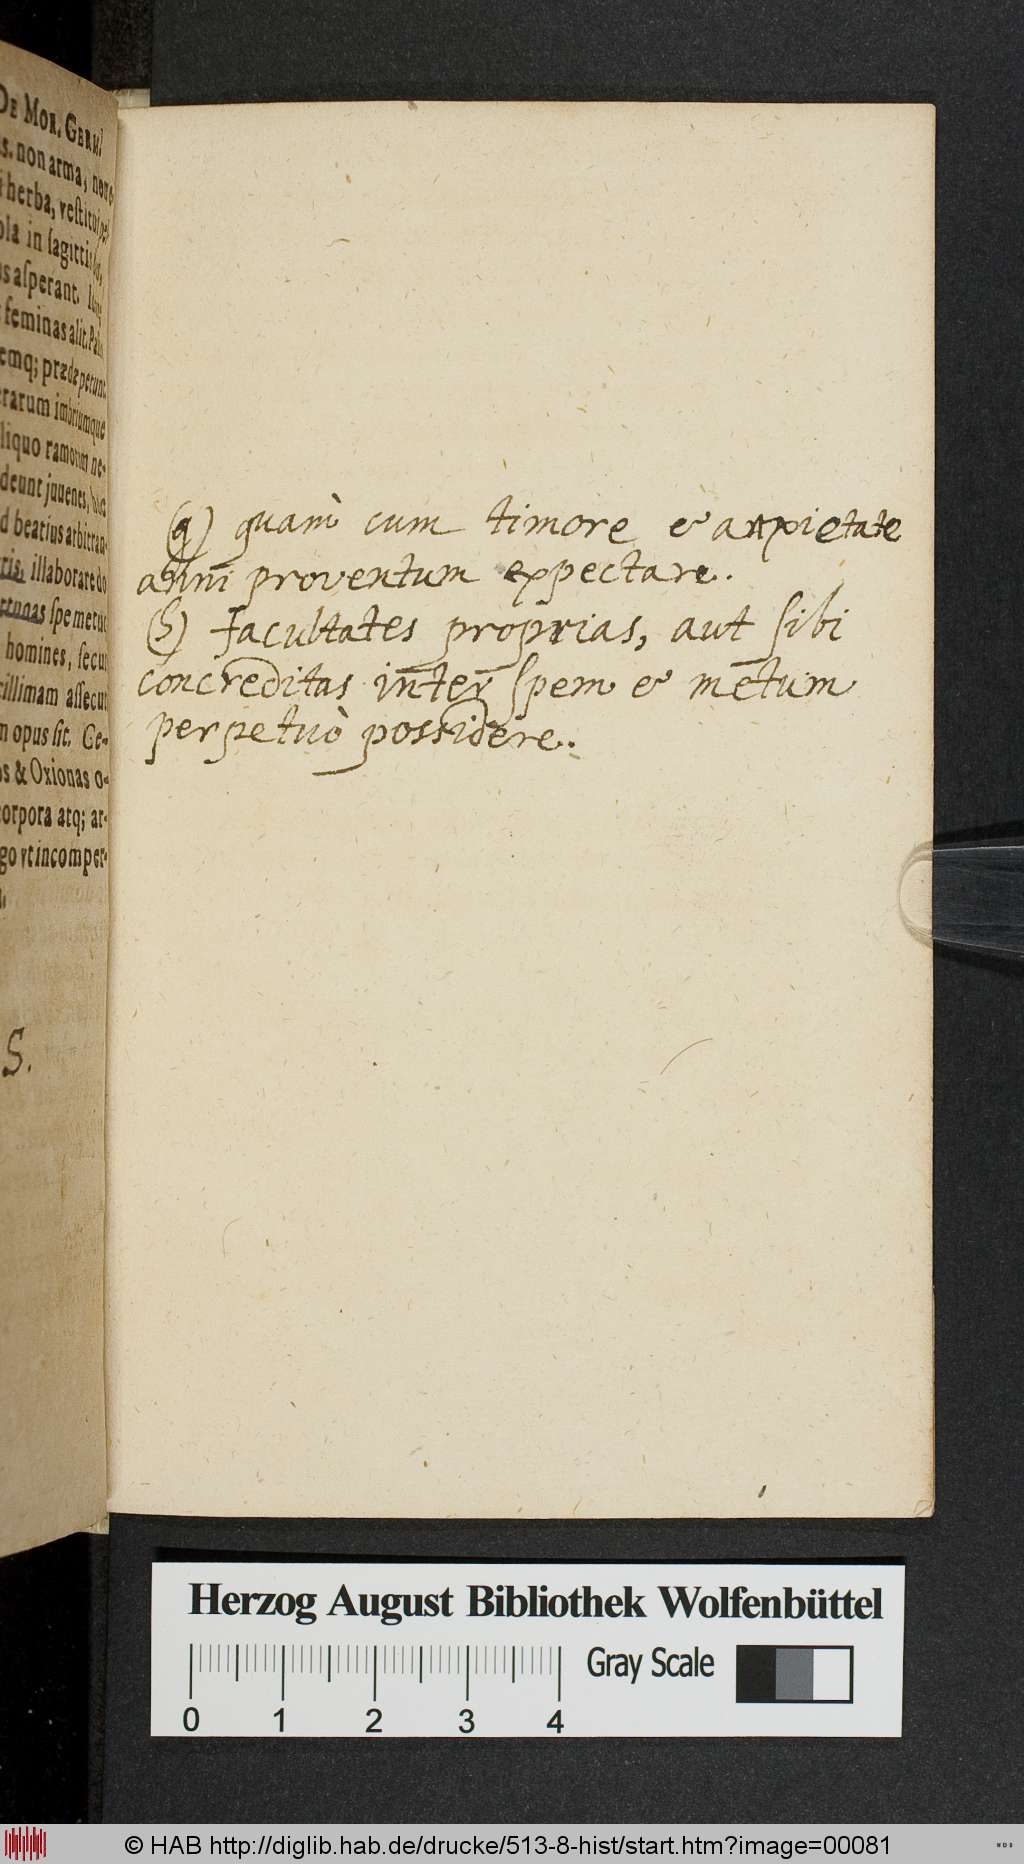 DE MOR. GERM.
s. non arma, non
herba, veſtitui pel
ola in ſagittis
us aſperant.
feminas alit.
emq; prædæ petunt.
erarum imbriumque
liquo ramorum ne-
deunt juuenes,
d beatius arbitran-
ris, illaborare do
rtunas ſpe metuq
homines, ſecur
cillimam aſſecut
m opus ſit. Ce-
os & Oxionas o-
corpora atq; ar-
go vt incomper-
S.
(g) quam̀ cum timore & anxietate
anni proventum expectare.
(h) Facultates proprias, aut ſibi
concreditas inter ſpem & metum
perpetuò possidere.
Herzog August Bibliothek Wolfenbüttel
Gray Scale
0 1 2 3 4
© HAB http://diglib.hab.de/drucke/513-8-hist/start.htm?image=00081